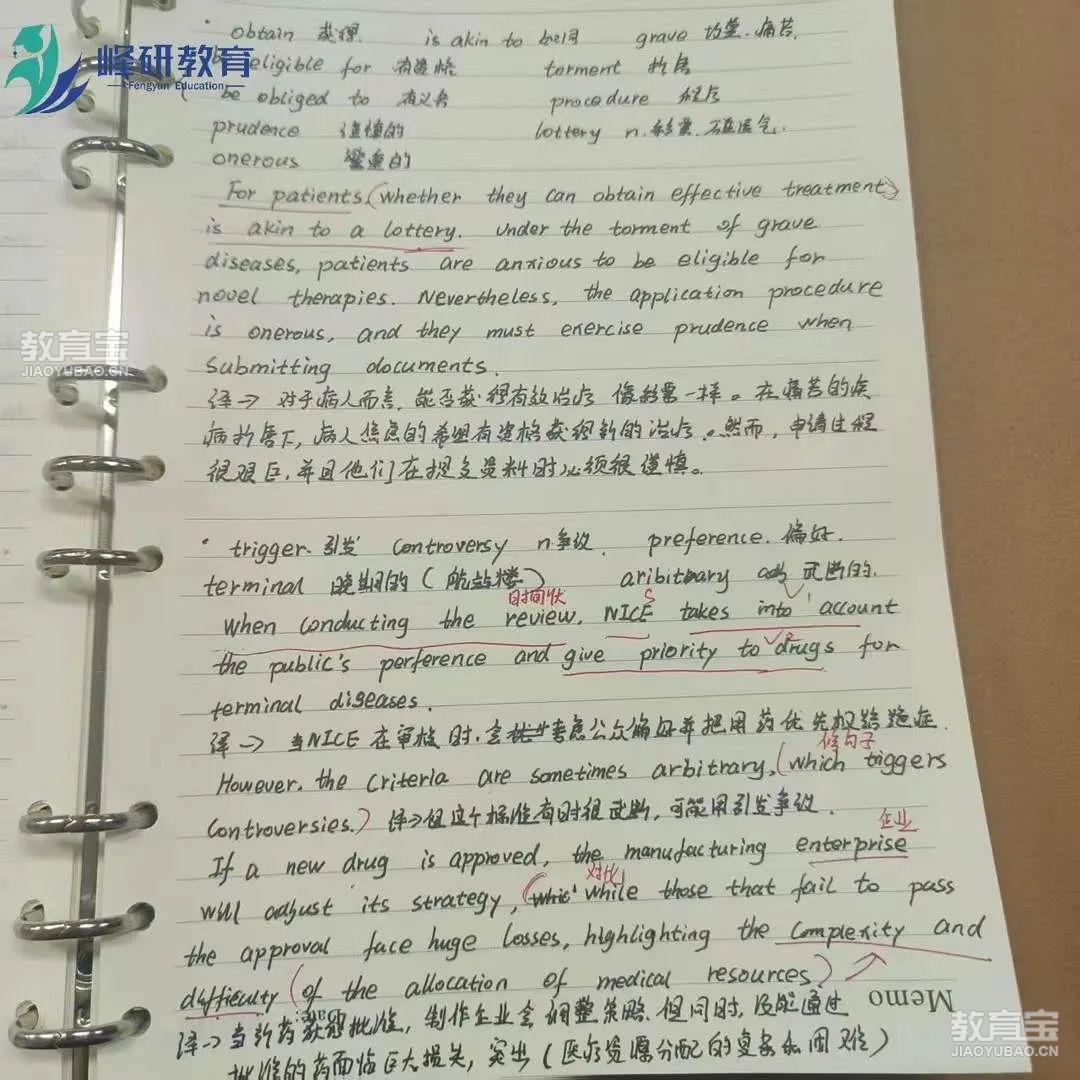 峰研教育
Fengyan Education
obtain 获得 is akin to 如同 grave 痛苦.
be eligible for 有资格 torment 折磨
be obliged to 有义务 procedure 程序
prudence 谨慎的 lottery n.彩票.
onerous 繁重的
For patients (whether they can obtain effective treatment)
is akin to a lottery. under the torment of grave
diseases, patients are anxious to be eligible for
novel therapies. Nevertheless, the application procedure
is onerous, and they must exercise prudence when
submitting documents.
译→ 对于病人而言, 能否获得有效治疗 像彩票一样。在痛苦的疾
病折磨下, 病人焦虑的希望有资格获得新的治疗。然而, 申请过程
很艰巨, 并且他们在提交资料时必须很谨慎。
trigger. 引发 controversy n争议. preference. 偏好.
terminal 晚期的 (航站楼) aribitrary adj 武断的.
时间状
When conducting the review, NICE takes into account
s
the public's perference and give priority to drugs for
terminal diseases.
译→ 当NICE 在审核时, 会考虑公众偏好并把用药优先权给绝症.
修句子
However, the criteria are sometimes arbitrary, (which triggers
controversies.) 译→但这个标准有时很武断, 可能用引发争议.
企业
If a new drug is approved, the manufacturing enterprise
对比
will adjust its strategy, (whic while those that fail to pass
the approval face huge losses, highlighting the complexity and
difficulty (of the allocation of medical resources)
译→当新药获得批准, 制作企业会调整策略. 但同时, 没能通过
批准的药面临巨大损失, 突出 (医疗资源分配的复杂和困难)
Memo
教育宝
JIAOYUBAO.CN
教育宝
JIAOYUBAO.CN